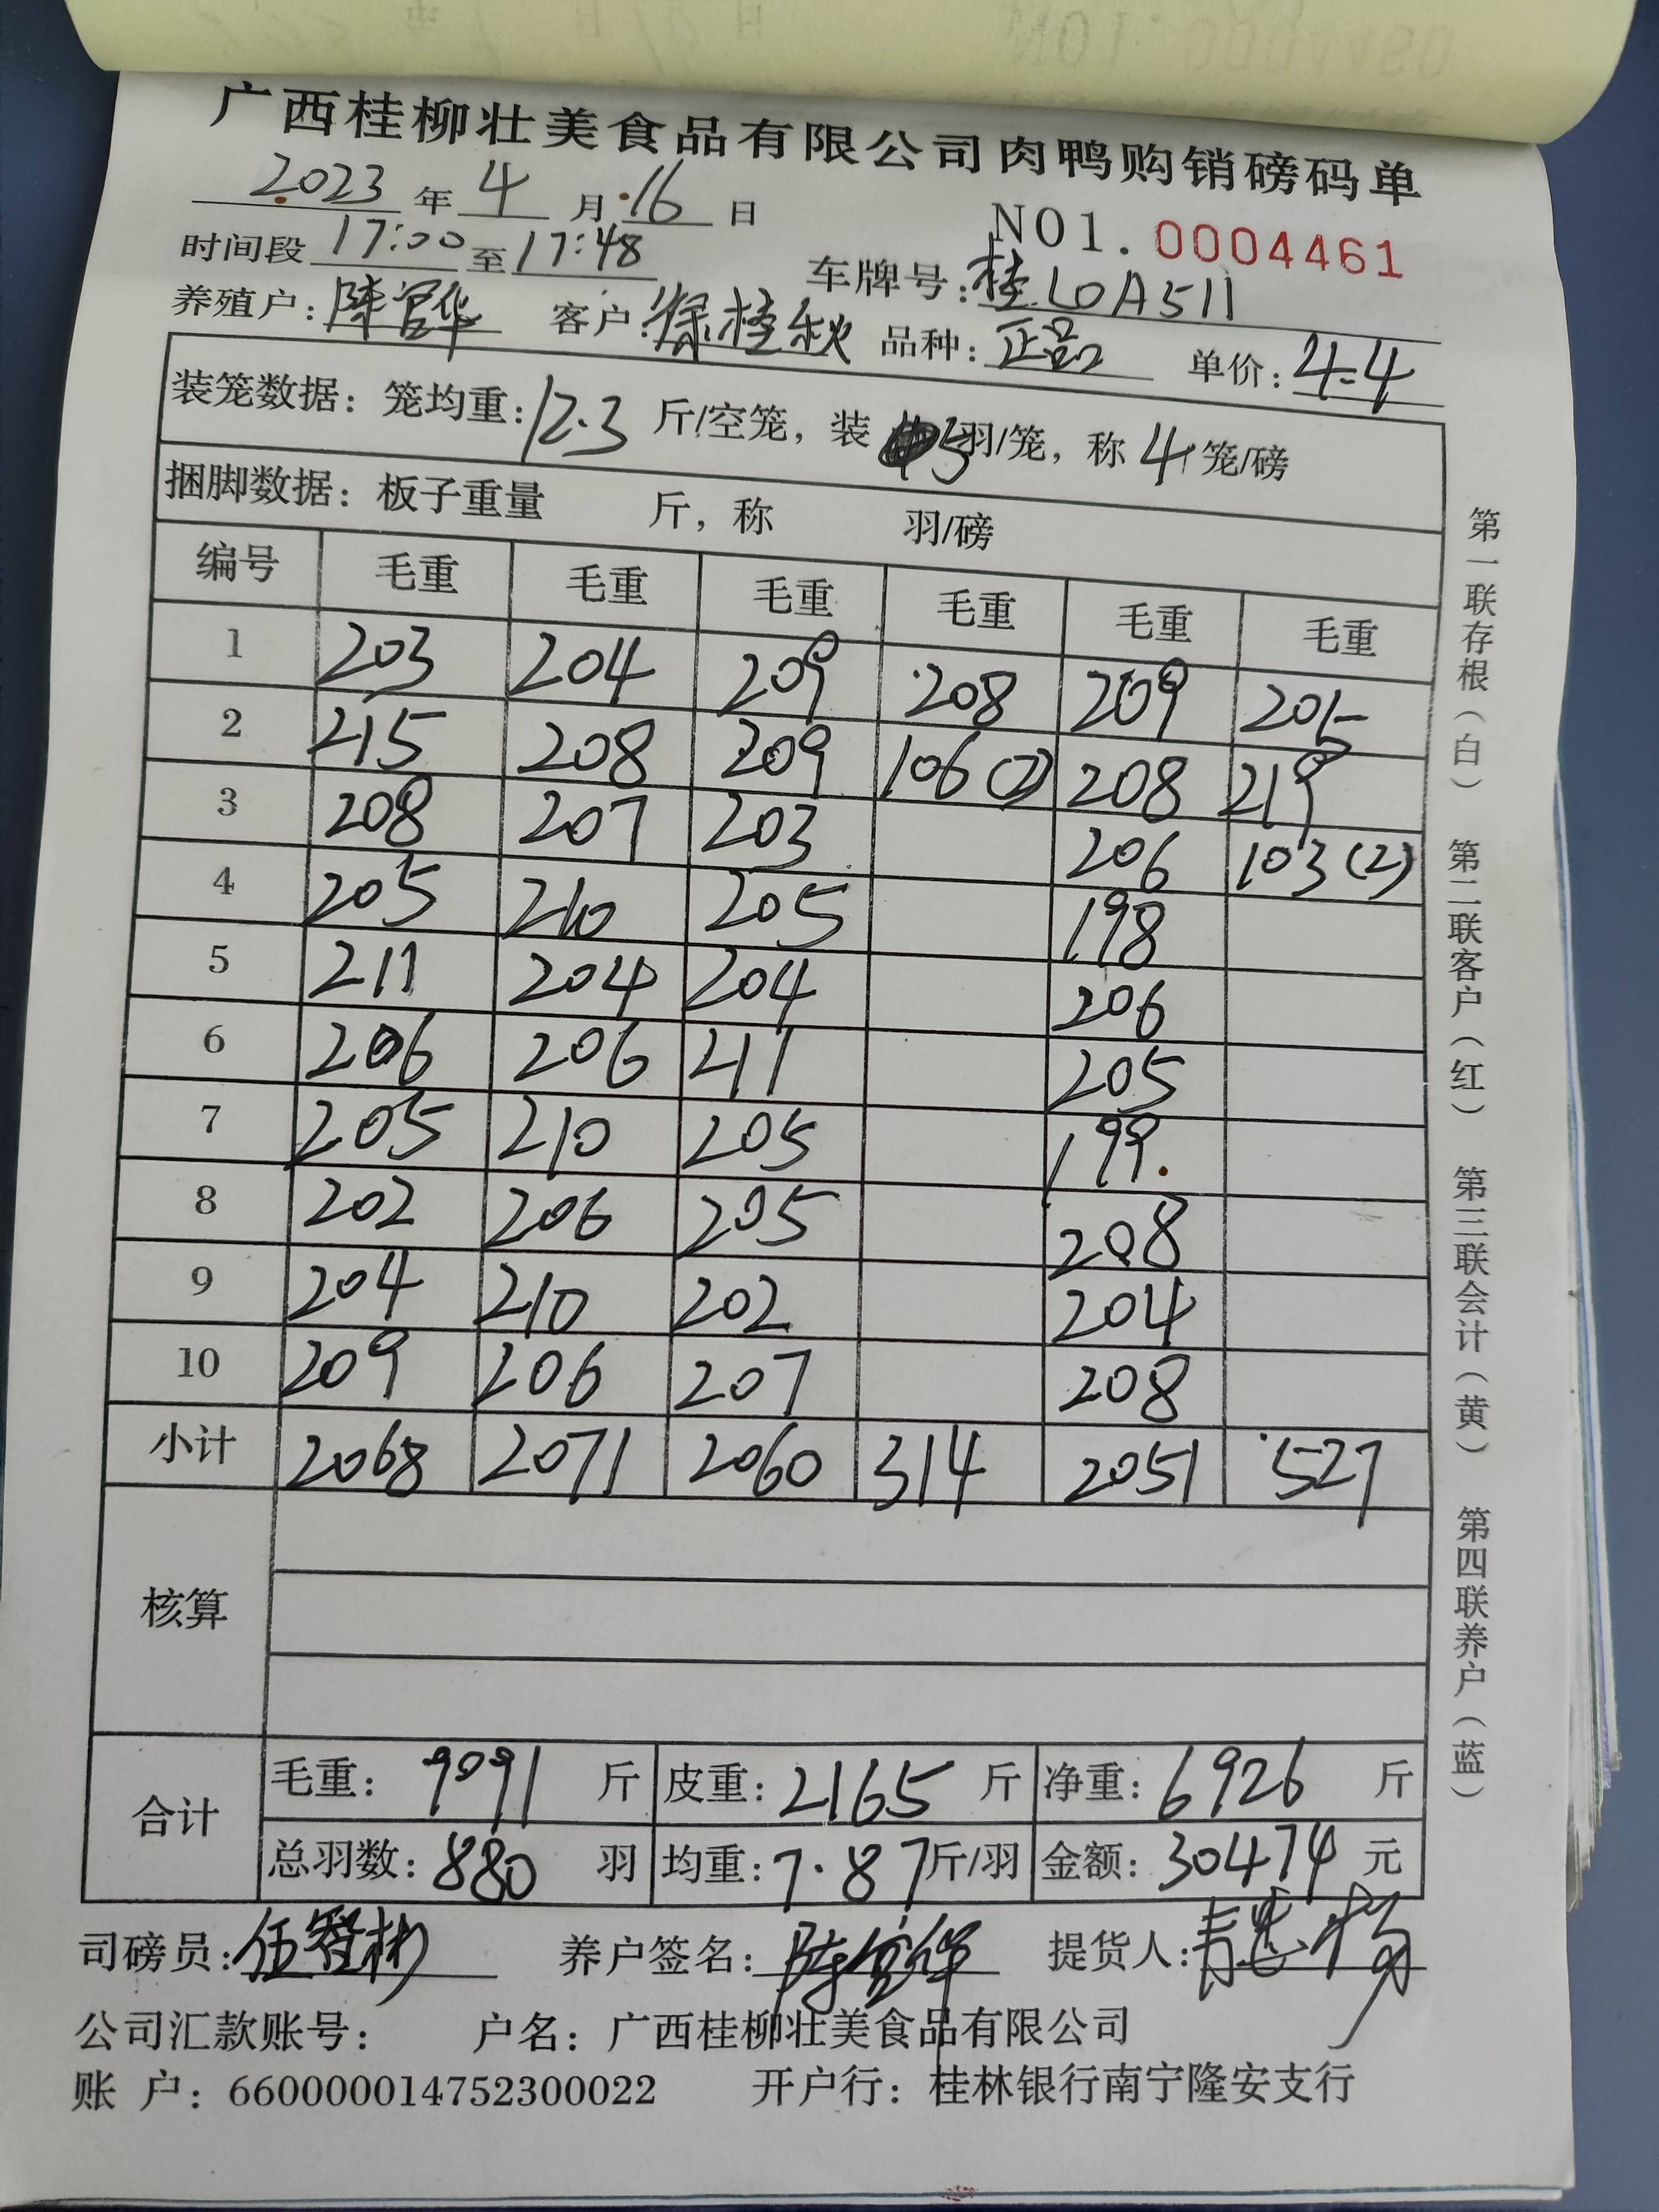 广西桂柳壮美食品有限公司肉鸭购销磅码单
2023年4月16日
NO1.0004461
时间段17:00至17:48 车牌号:桂L0A511
养殖户:陈官华 客户:徐桂秋 品种:正品 单价:4.4
装笼数据：笼均重:12.3斤/空笼，装5羽/笼，称4笼/磅
捆脚数据：板子重量 斤，称 羽/磅
编号 毛重 毛重 毛重 毛重 毛重 毛重
1 203 204 209 208 209 205
2 215 208 209 106(2) 208 219
3 208 207 203 206 103(2)
4 205 210 205 198
5 211 204 204 206
6 206 206 211 205
7 205 210 205 199
8 202 206 205 208
9 204 210 202 204
10 209 206 207 208
小计 2068 2071 2060 314 2051 527
核算
合计 毛重：9091斤 皮重：2165斤 净重：6926斤
总羽数：880羽 均重：7.87斤/羽 金额：30474元
司磅员:伍智彬 养户签名:陈官华 提货人:
公司汇款账号： 户名：广西桂柳壮美食品有限公司
账 户：660000014752300022 开户行：桂林银行南宁隆安支行
第一联存根（白） 第二联客户（红） 第三联会计（黄） 第四联养户（蓝）